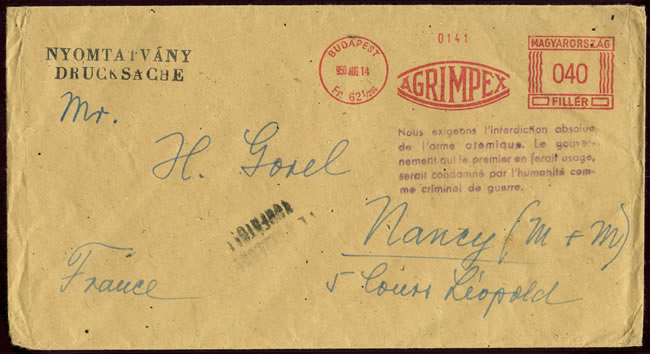 NYOMTATVÁNY
DRUCKSACHE
BUDAPEST
950 AUG 14
Fr. 62
0141
AGRIMPEX
MAGYARORSZÁG
040
FILLÉR
Nous exigeons l'interdiction absolue
de l'arme atomique. Le gouver-
nement qui le premier en ferait usage,
serait condamné par l'humanité com-
me criminel de guerre.
Mr.
H. Gorel
Nancy (M + M)
France
5 Cours Léopold